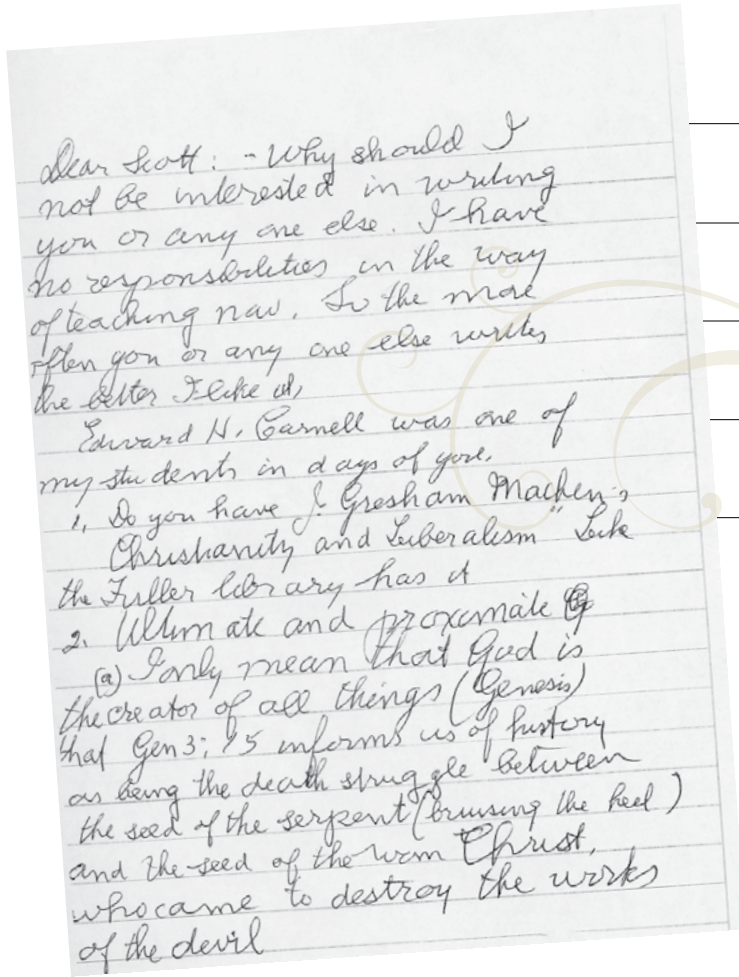 Dear Scott: - Why should I
not be interested in writing
you or any one else. I have
no responsibilities in the way
of teaching now. So the more
often you or any one else writes
the better I like it,
Edward H. Carnell was one of
my students in days of yore.
1, Do you have J. Gresham Machen's
Christianity and Liberalism"
the Fuller library has it
2. Ultimate and proximate
(a) I only mean that God is
the creator of all things (Genesis)
that Gen 3:15 informs us of history
as being the death struggle between
the seed of the serpent (bruising the heel)
and the seed of the wom Christ,
who came to destroy the works
of the devil